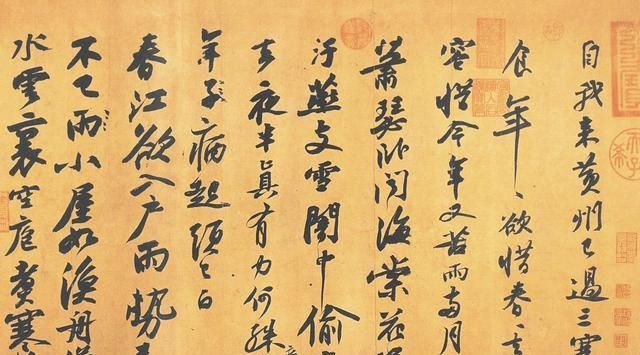 自我來黃州已過三寒
食年〻欲惜春〻去
容惜今年又苦雨兩月
蕭瑟臥聞海棠花
汙燕支雪闇中偷
去夜半真有力何殊
年子病起頭已白
春江欲入戶雨勢來
不已雨小屋如漁舟
水雲裏空庖煮寒